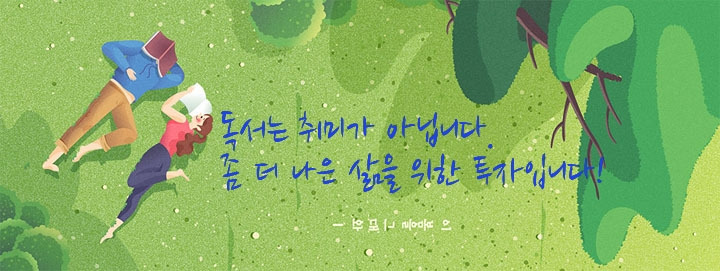 독서는 취미가 아닙니다.
좀 더 나은 삶을 위한 투자입니다!